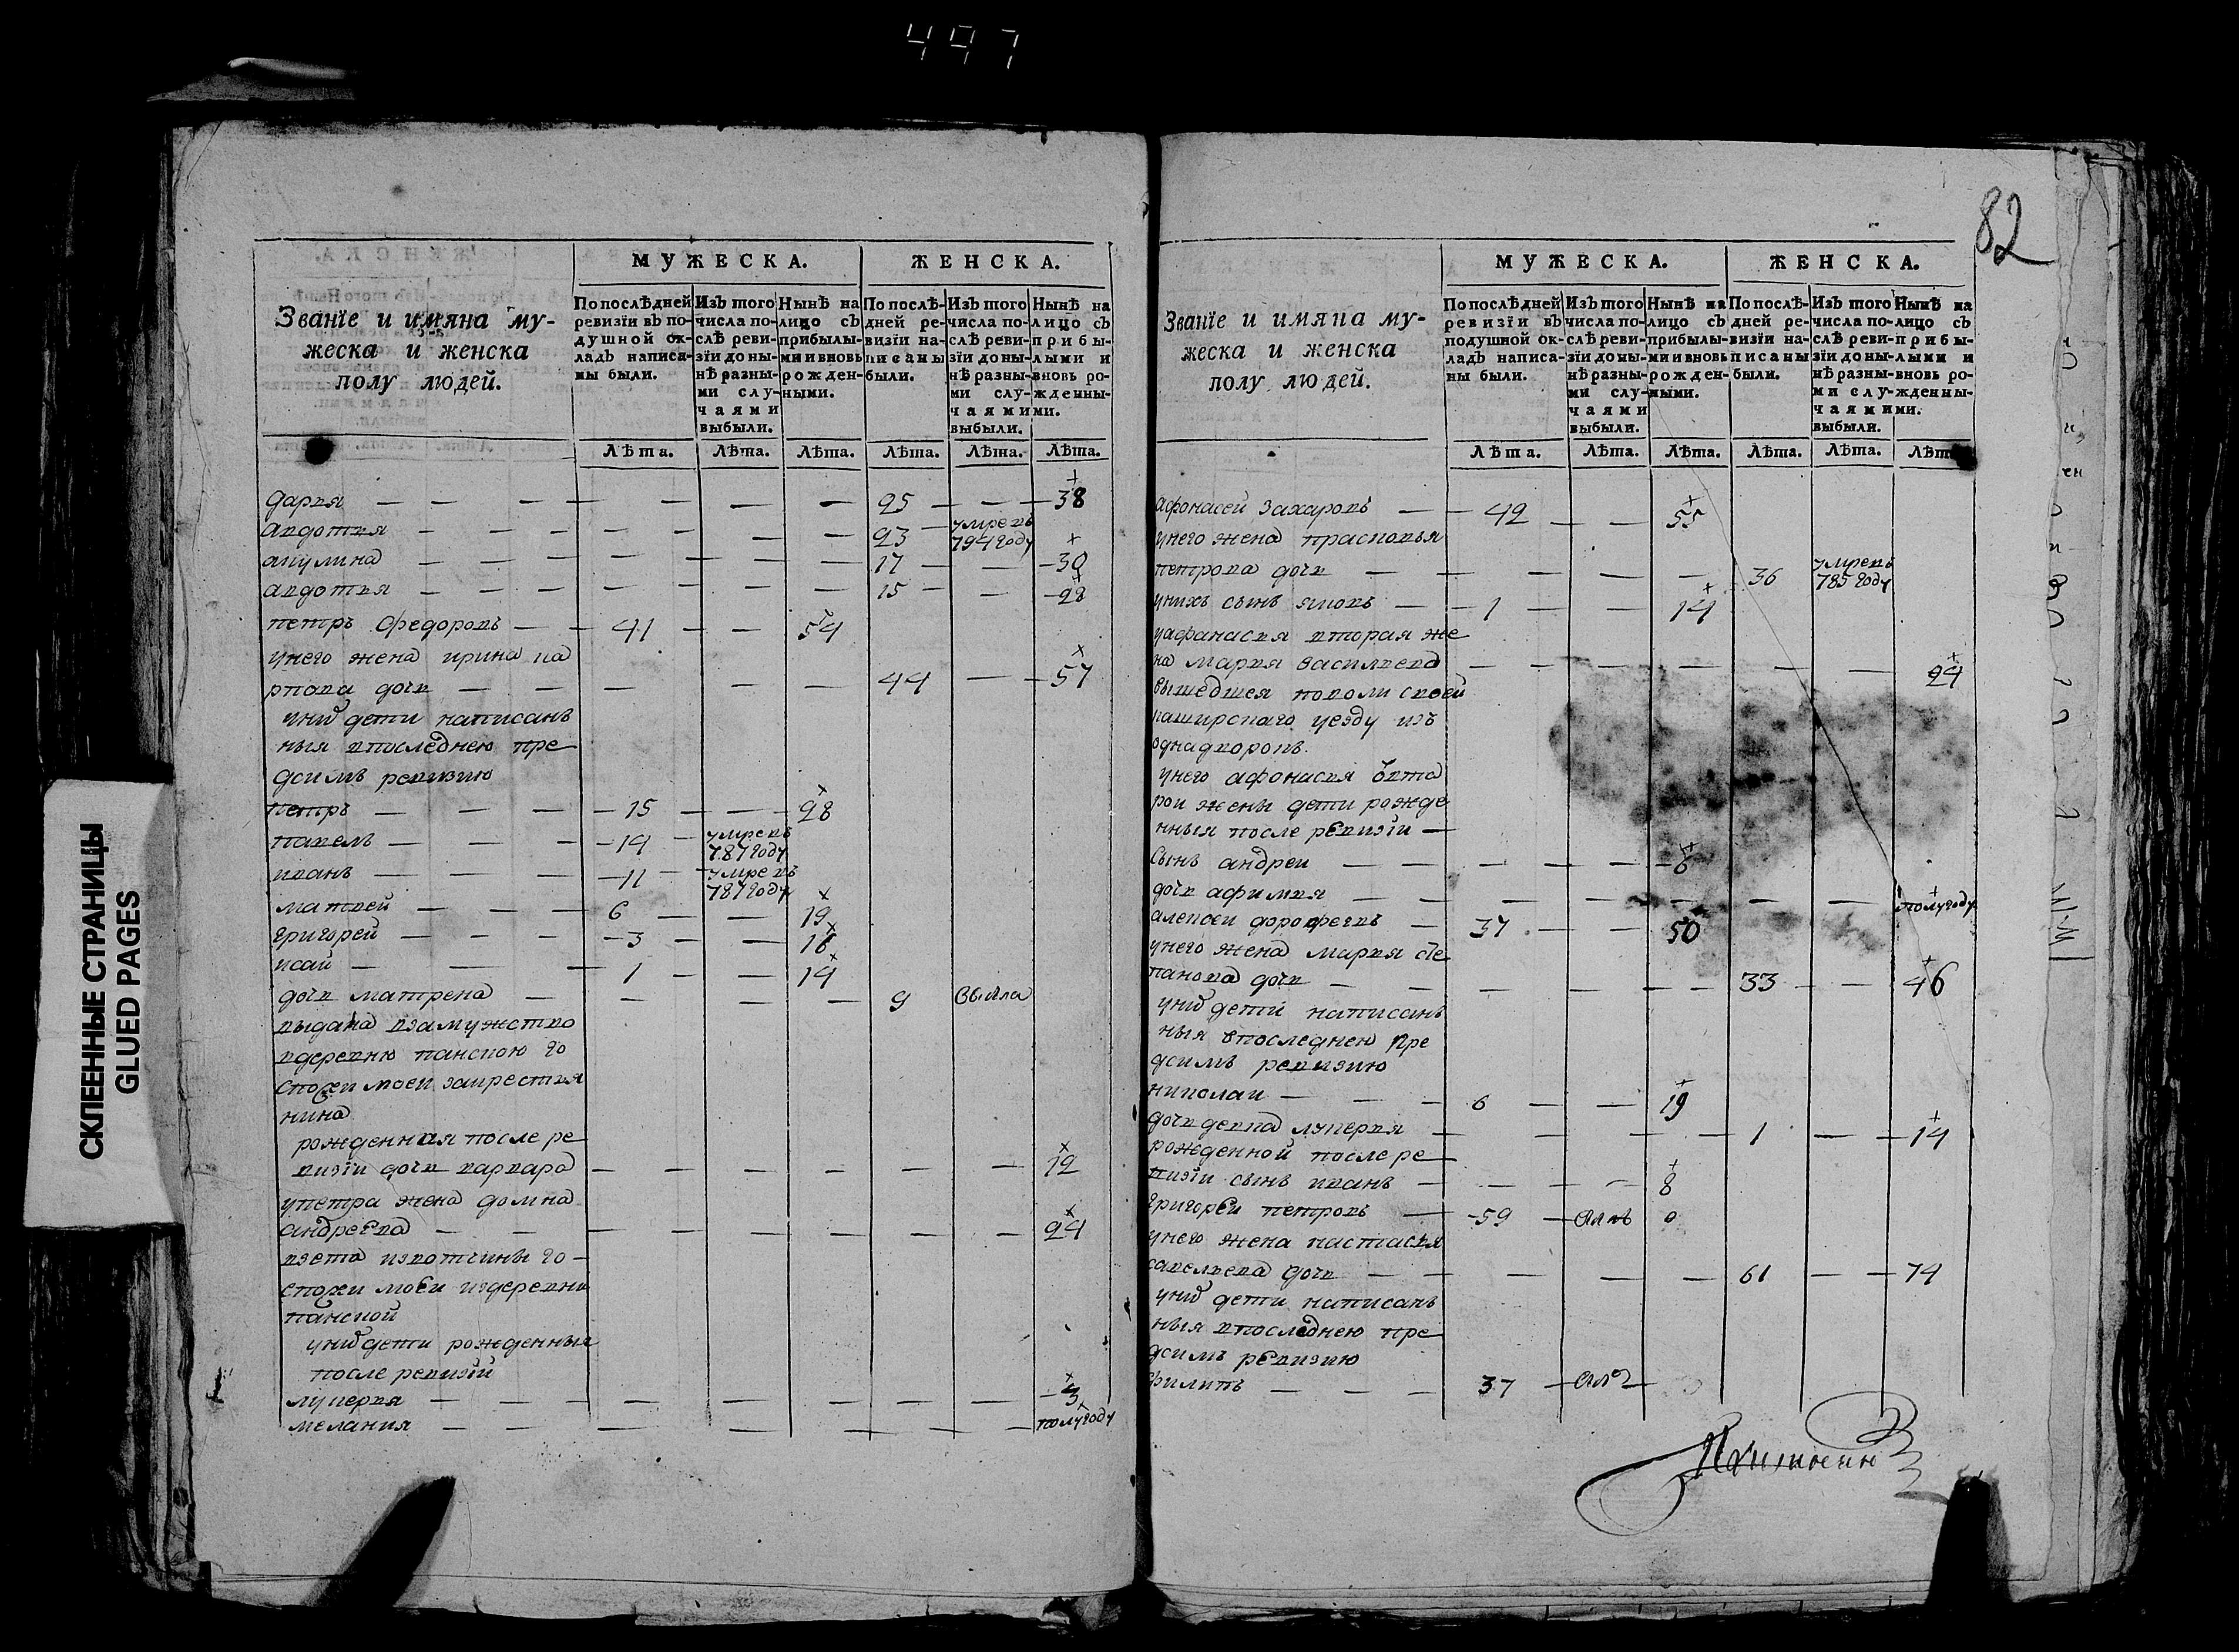 447
82
СКЛЕЕННЫЕ СТРАНИЦЫ
GLUED PAGES
Званїе и имяна му-
жеска и женска
полу людей.
МУЖЕСКА.
ЖЕНСКА.
По послѣдней ревизїи въ по-
душной ок-
ладъ написа-
ны были.
Изъ того
числа по-
слѣ реви-
зїи до ны-
нѣ разны-
ми слу-
чаями
выбыли.
Нынѣ на
лицо съ
прибылы-
ми и вновь
рожден-
ными.
По послѣ-
дней ре-
визїи на-
писаны
были.
Изъ того
числа по-
слѣ реви-
зїи до ны-
нѣ разны-
ми слу-
чаями
выбыли.
Нынѣ на
лицо съ
прибы-
лыми и
вновь ро-
жденны-
ми.
Лѣта. Лѣта. Лѣта. Лѣта. Лѣта. Лѣта.
дарья — 25 — 38
авдотья — 23 умревъ 794 году
акулина — 17 — 30
авдотья — 15 — 28
петръ федоровъ — 41 — 54
унего жена ирина ка
рпова дочь — 44 — 57
унихъ дети написанъ
ныя впоследнею пре
дсимъ ревизию
петръ — 15 — 28
павелъ — 14 умревъ 787 году
иванъ — 11 умревъ 787 году
матвей — 6 — 19
григорей — 3 — 16
исай — 1 — 14
дочь матрена — 9 вышла
выдана взамужство
вдеревню панскою го
спожи моей закрестья
нина
рожденная после ре
визїи дочь варвара — 12
упетра жена домна
андреева — 24
взета извотчины го-
спожи моей издеревни
панской
унихъ дети рожденныя
после ревизїй
лукерья — 3
мелания — полугоду
Званїе и имяна му-
жеска и женска
полу людей.
МУЖЕСКА.
ЖЕНСКА.
По послѣдней
ревизїи въ
подушной ок-
ладъ написа-
ны были.
Изъ того
числа по-
слѣ реви-
зїи до ны-
нѣ разны-
ми слу-
чаями
выбыли.
Нынѣ на
лицо съ
прибылы-
ми и вновь
рожден-
ными.
По послѣ-
дней ре-
визїи на-
писаны
были.
Изъ того
числа по-
слѣ реви-
зїи до ны-
нѣ разны-
ми слу-
чаями
выбыли.
Нынѣ на
лицо съ
прибы-
лыми и
вновь ро-
жденны-
ми.
Лѣта. Лѣта. Лѣта. Лѣта. Лѣта. Лѣта.
афонасей захаровъ — 42 — 55
унего жена прасковья
петрова дочь — 36 умревъ 785 году
унихъ сынъ яковъ — 1 — 14
уафанасья вторая же
на марья васильева — 24
вышедшея поволи своей
каширскаго уезду изъ
однадворовъ.
унего афонасья ѿвто
рои жены дети рожде
нныя после ревизїи —
сынъ андреи — 6
дочь афимья — полугоду
алексеи дорофеевъ — 37 — 50
унего жена марья сте
панова дочь — 33 — 46
унихъ дети написанъ
ныя впоследнею пре
дсимъ ревизию
николаи — 6 — 19
дочь девка лукерья — 1 — 14
рожденной после ре
визїи сынъ иванъ — 8
григореи петровъ — 59 — 0
унего жена настасья
савельева дочь — 61 — 74
унихъ дети написанъ
ныя впоследнею пре
дсимъ ревизию
филипъ — 37